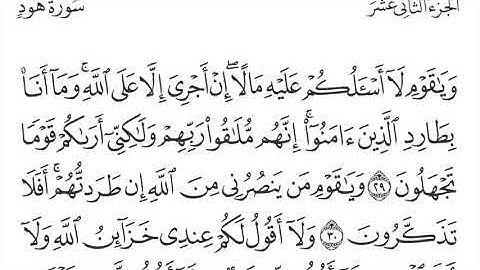 الجزء الثاني عشر
سورة هود
وَيَٰقَوْمِ لَآ أَسْـَٔلُكُمْ عَلَيْهِ مَالًا ۖ إِنْ أَجْرِىَ إِلَّا عَلَى ٱللَّهِ ۚ وَمَآ أَنَا۠
بِطَارِدِ ٱلَّذِينَ ءَامَنُوٓا۟ ۚ إِنَّهُم مُّلَٰقُوا۟ رَبِّهِمْ وَلَٰكِنِّىٓ أَرَىٰكُمْ قَوْمًا
تَجْهَلُونَ ٢٩ وَيَٰقَوْمِ مَن يَنصُرُنِى مِنَ ٱللَّهِ إِن طَرَدتُّهُمْ ۚ أَفَلَا
تَذَكَّرُونَ ٣٠ وَلَآ أَقُولُ لَكُمْ عِندِى خَزَآئِنُ ٱللَّهِ وَلَآ